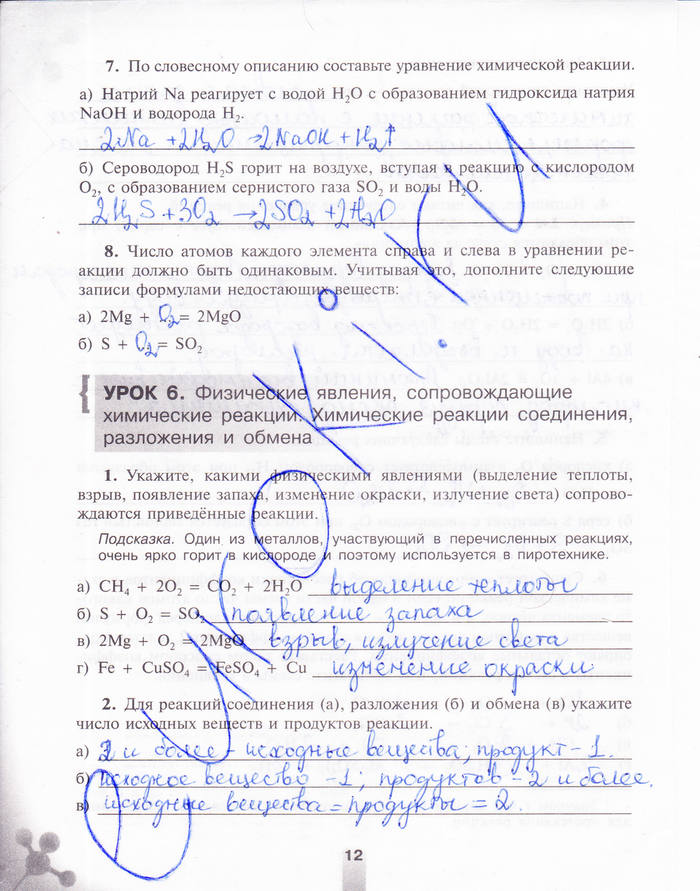 7. По словесному описанию составьте уравнение химической реакции.
а) Натрий Na реагирует с водой H₂O с образованием гидроксида натрия
NaOH и водорода H₂.
2Na + 2H₂O → 2NaOH + H₂↑
б) Сероводород H₂S горит на воздухе, вступая в реакцию с кислородом
O₂, с образованием сернистого газа SO₂ и воды H₂O.
2H₂S + 3O₂ → 2SO₂ + 2H₂O
8. Число атомов каждого элемента справа и слева в уравнении ре-
акции должно быть одинаковым. Учитывая это, дополните следующие
записи формулами недостающих веществ:
а) 2Mg + O₂ = 2MgO
б) S + O₂ = SO₂
УРОК 6. Физические явления, сопровождающие
химические реакции. Химические реакции соединения,
разложения и обмена
1. Укажите, какими физическими явлениями (выделение теплоты,
взрыв, появление запаха, изменение окраски, излучение света) сопрово-
ждаются приведённые реакции.
Подсказка. Один из металлов, участвующий в перечисленных реакциях,
очень ярко горит в кислороде и поэтому используется в пиротехнике.
а) CH₄ + 2O₂ = CO₂ + 2H₂O выделение теплоты
б) S + O₂ = SO₂ появление запаха
в) 2Mg + O₂ = 2MgO взрыв, излучение света
г) Fe + CuSO₄ = FeSO₄ + Cu изменение окраски
2. Для реакций соединения (а), разложения (б) и обмена (в) укажите
число исходных веществ и продуктов реакции.
а) 2 и более - исходные вещества; продукт - 1.
б) исходное вещество - 1; продуктов - 2 и более.
в) исходные вещества = продукты = 2.
12